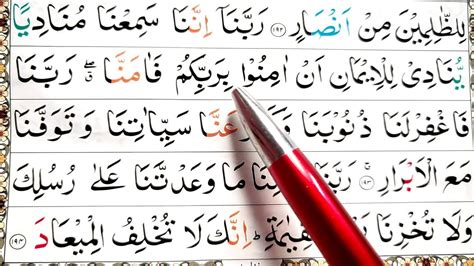 لِلظّٰلِمِيْنَ مِنْ اَنْصَارٍ ۝۱۹۲ رَبَّنَاۤ اِنَّنَا سَمِعْنَا مُنَادِيًا
يُّنَادِيْ لِلْاِيْمَانِ اَنْ اٰمِنُوْا بِرَبِّكُمْ فَاٰمَنَّا ۖ رَبَّنَا
فَاغْفِرْ لَنَا ذُنُوْبَنَا عَنَّا سَيِّاٰتِنَا وَتَوَفَّنَا
مَعَ الْاَبْرَارِ ۝۱۹۳ رَبَّنَا مَا وَعَدْتَّنَا عَلٰى رُسُلِكَ
وَلَا تُخْزِنَا اِنَّكَ لَا تُخْلِفُ الْمِيْعَادَ ۝۱۹۴